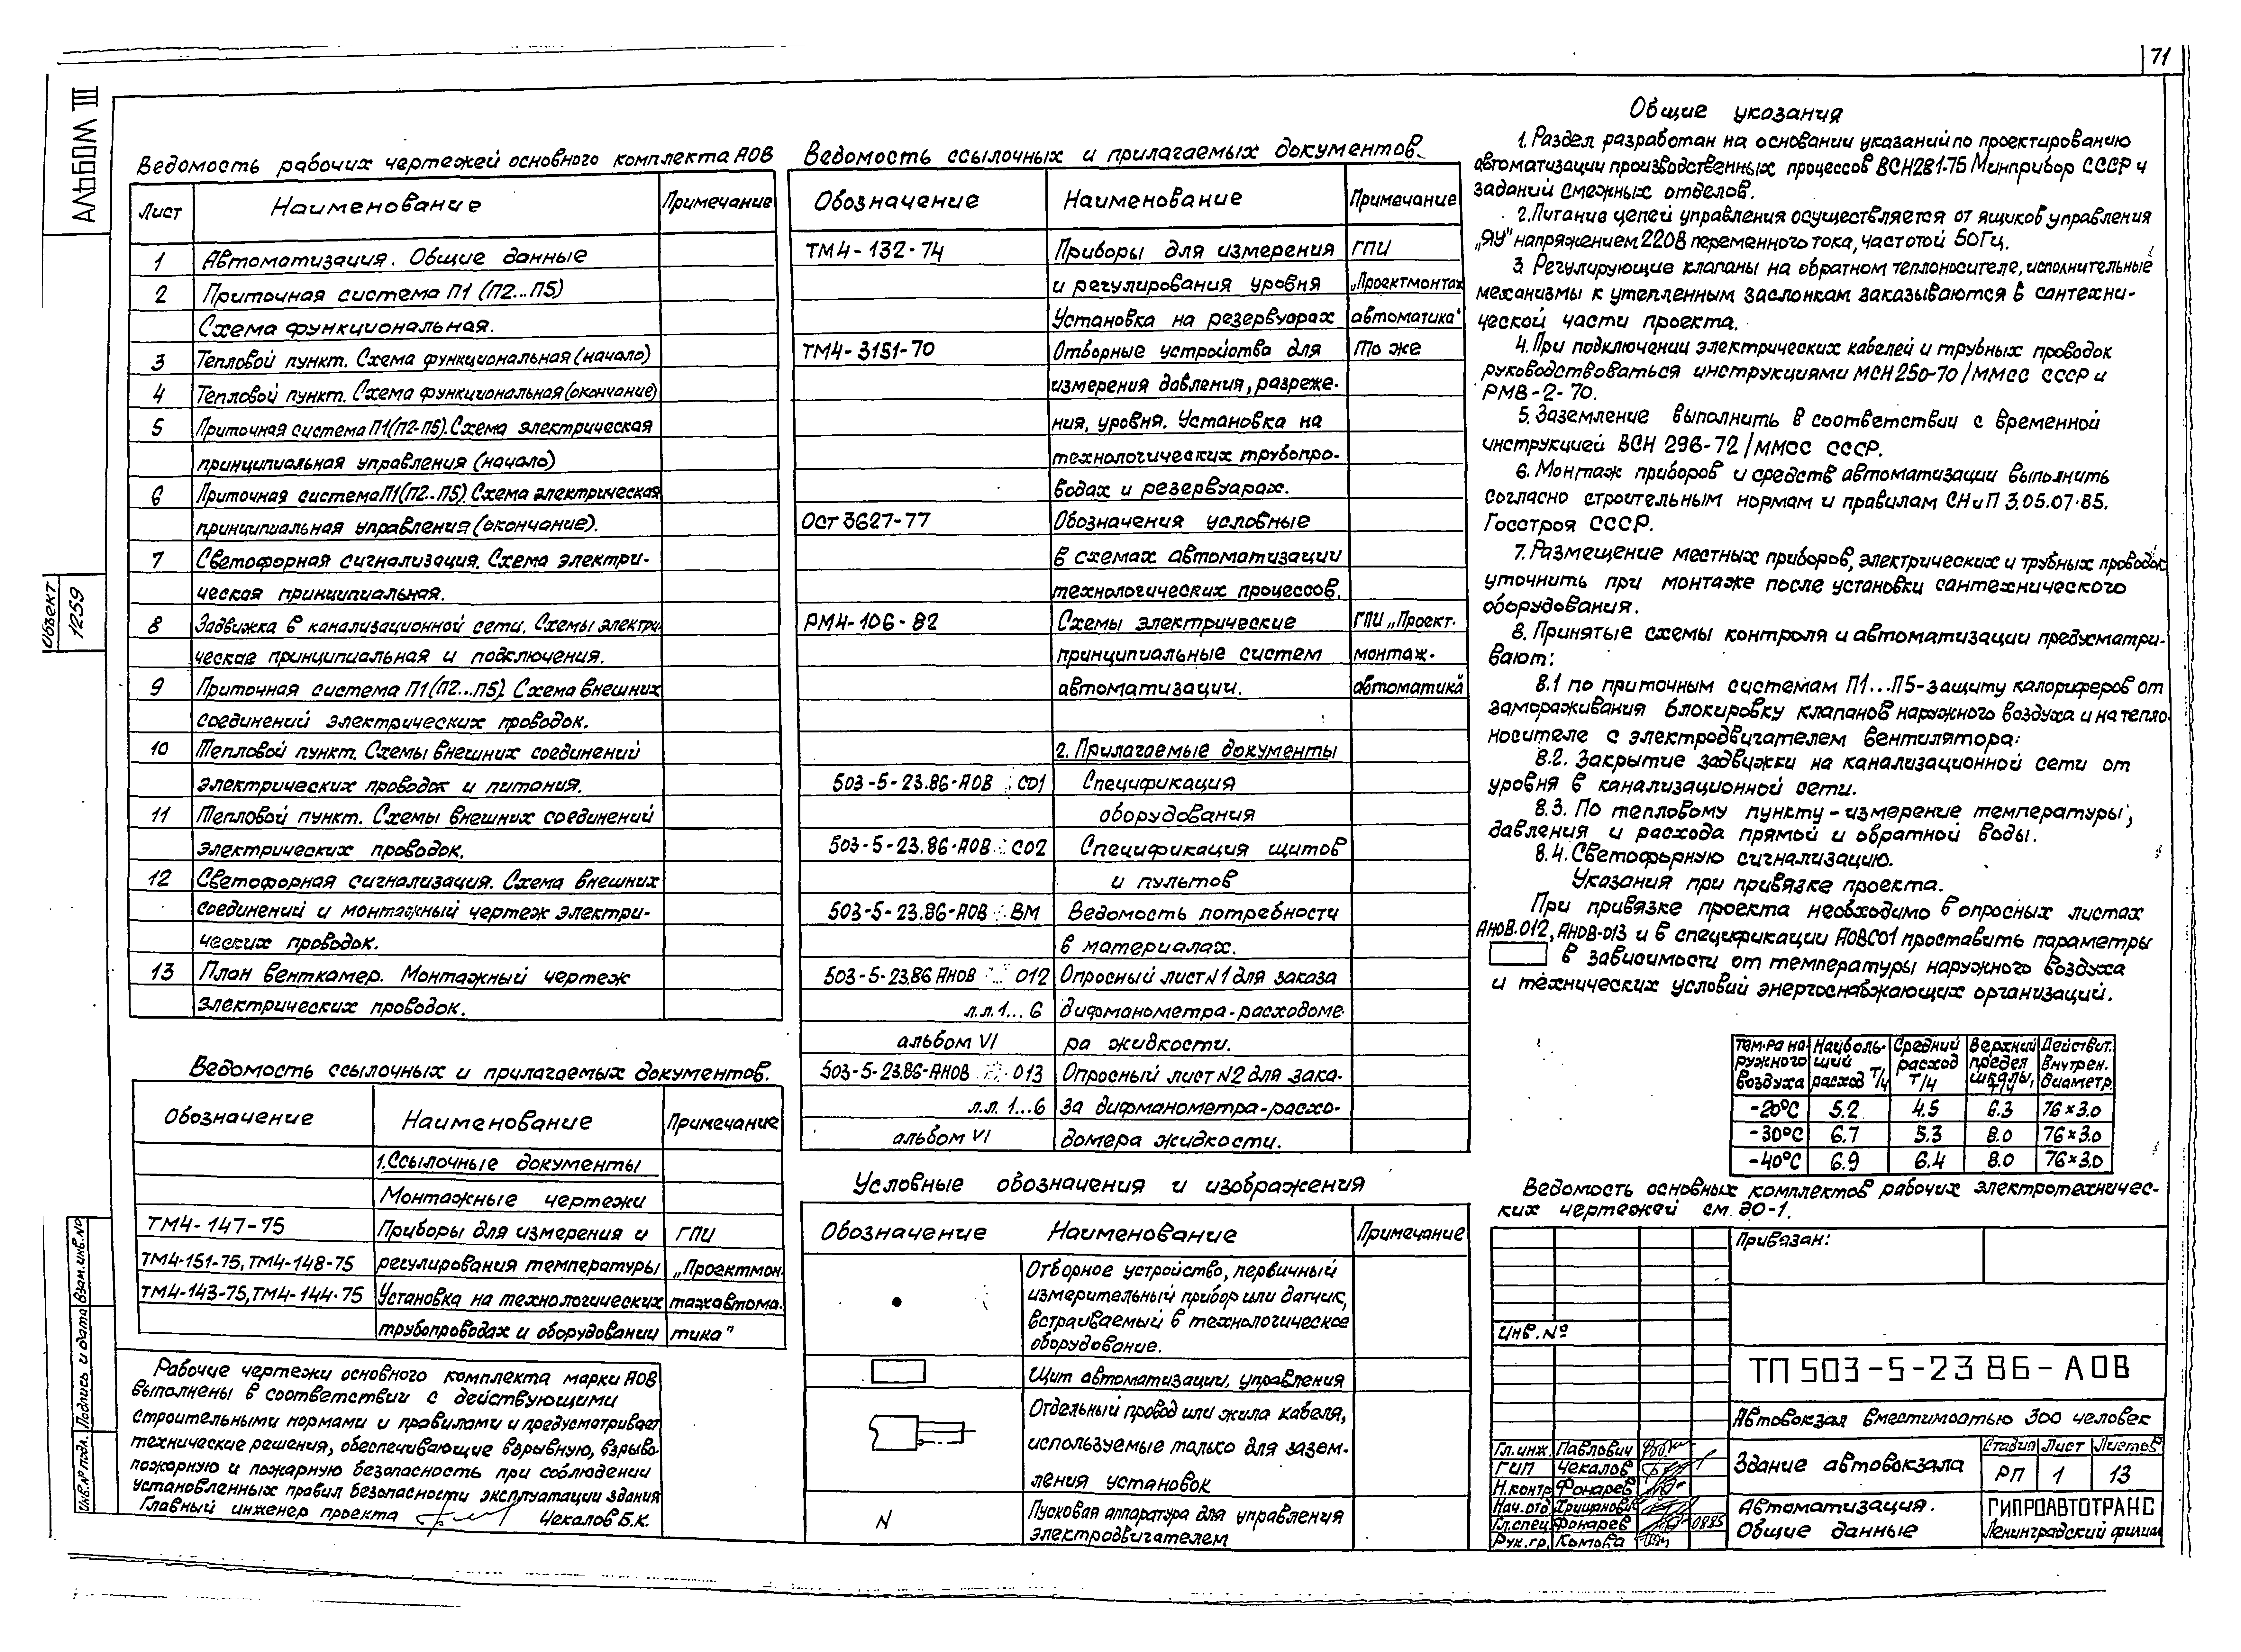 71
Альбом III
Объект
1259
Взам. инв. №
Подпись и дата
Инв. № подл.
Ведомость рабочих чертежей основного комплекта АОВ
Лист Наименование Примечание
1 Автоматизация. Общие данные
2 Приточная система П1 (П2...П5)
Схема функциональная.
3 Тепловой пункт. Схема функциональная (начало)
4 Тепловой пункт. Схема функциональная (окончание)
5 Приточная система П1(П2-П5). Схема электрическая
принципиальная управления (начало)
6 Приточная система П1(П2..П5) Схема электрическая
принципиальная управления (окончание).
7 Светофорная сигнализация. Схема электри-
ческая принципиальная.
8 Задвижка в канализационной сети. Схемы электри-
ческие принципиальная и подключения.
9 Приточная система П1(П2...П5) Схема внешних
соединений электрических проводок.
10 Тепловой пункт. Схемы внешних соединений
электрических проводок и питания.
11 Тепловой пункт. Схемы внешних соединений
электрических проводок.
12 Светофорная сигнализация. Схема внешних
соединений и монтажный чертеж электри-
ческих проводок.
13 План венткамер. Монтажный чертеж
электрических проводок.
Ведомость ссылочных и прилагаемых документов.
Обозначение Наименование Примечание
1. Ссылочные документы
Монтажные чертежи
ТМ4-147-75 Приборы для измерения и ГПИ
ТМ4-151-75, ТМ4-148-75 регулирования температуры „Проектмон-
ТМ4-143-75, ТМ4-144-75 Установка на технологических тажавтома-
трубопроводах и оборудовании тика"
Рабочие чертежи основного комплекта марки АОВ
выполнены в соответствии с действующими
строительными нормами и правилами и предусматривает
технические решения, обеспечивающие взрывную, взрыво-
пожарную и пожарную безопасность при соблюдении
установленных правил безопасности эксплуатации здания
Главный инженер проекта Чекалов Б.К.
Ведомость ссылочных и прилагаемых документов.
Обозначение Наименование Примечание
ТМ4-132-74 Приборы для измерения ГПИ
и регулирования уровня „Проектмонтаж
Установка на резервуарах автоматика"
ТМ4-3151-70 Отборные устройства для то же
измерения давления, разреже-
ния, уровня. Установка на
технологических трубопро-
водах и резервуарах.
Ост 3627-77 Обозначения условные
в схемах автоматизации
технологических процессов.
РМ4-106-82 Схемы электрические ГПИ „Проект-
принципиальные систем монтаж-
автоматизации. автоматика"
2. Прилагаемые документы
503-5-23.86-АОВ СО1 Спецификация
оборудования
503-5-23.86-АОВ СО2 Спецификация щитов
и пультов
503-5-23.86-АОВ ВМ Ведомость потребности
в материалах.
503-5-23.86 АНОВ 012 Опросный лист N1 для заказа
л.л. 1...6 дифманометра-расходоме-
альбом VI ра жидкости.
503-5-23.86-АНОВ 013 Опросный лист N2 для зака-
л.л. 1...6 за дифманометра-расхо-
альбом VI домера жидкости.
Условные обозначения и изображения
Обозначение Наименование Примечание
Отборное устройство, первичный
измерительный прибор или датчик,
встраиваемый в технологическое
оборудование.
Щит автоматизации, управления
Отдельный провод или жила кабеля,
используемые только для зазем-
ления установок
N Пусковая аппаратура для управления
электродвигателем
Общие указания
1. Раздел разработан на основании указаний по проектированию
автоматизации производственных процессов ВСН281-75 Минприбор СССР и
заданий смежных отделов.
2. Питание цепей управления осуществляется от ящиков управления
„ЯУ" напряжением 220В переменного тока, частотой 50Гц.
3. Регулирующие клапаны на обратном теплоносителе, исполнительные
механизмы к утепленным заслонкам заказываются в сантехни-
ческой части проекта.
4. При подключении электрических кабелей и трубных проводок
руководствоваться инструкциями МСН 250-70/ММСС СССР и
РМВ-2-70.
5. Заземление выполнить в соответствии с временной
инструкцией ВСН 296-72/ММСС СССР.
6. Монтаж приборов и средств автоматизации выполнить
согласно строительным нормам и правилам СНиП 3.05.07-85.
Госстроя СССР.
7. Размещение местных приборов, электрических и трубных проводок
уточнить при монтаже после установки сантехнического
оборудования.
8. Принятые схемы контроля и автоматизации предусматри-
вают:
8.1 по приточным системам П1...П5-защиту калориферов от
замораживания блокировку клапанов наружного воздуха и на тепло-
носителе с электродвигателем вентилятора;
8.2. Закрытие задвижки на канализационной сети от
уровня в канализационной сети.
8.3. По тепловому пункту - измерение температуры,
давления и расхода прямой и обратной воды.
8.4. Светофорную сигнализацию.
Указания при привязке проекта.
При привязке проекта необходимо в опросных листах
АНОВ.012, АНОВ-013 и в спецификации АОВСО1 проставить параметры
в зависимости от температуры наружного воздуха
и технических условий энергоснабжающих организаций.
Тем-ра на- Наиболь- Средний Верхний Действит.
ружного ший расход предел внутрен.
воздуха расход т/ч т/ч шкалы, т/ч диаметр
-20°С 5.2 4.5 6.3 76×3.0
-30°С 6.7 5.3 8.0 76×3.0
-40°С 6.9 6.4 8.0 76×3.0
Ведомость основных комплектов рабочих электротехничес-
ких чертежей см ЭО-1.
Привязан:
Инв. №
ТП 503-5-23 86-АОВ
Автовокзал вместимостью 300 человек
Гл. инж. Павлович
ГИП Чекалов
Н.контр Фонарев
Нач. отд
Гл. спец Фонарев 0885
Рук. гр. Комова
Здание автовокзала
Стадия Лист Листов
РП 1 13
Автоматизация.
Общие данные
ГИПРОАВТОТРАНС
Ленинградский филиал